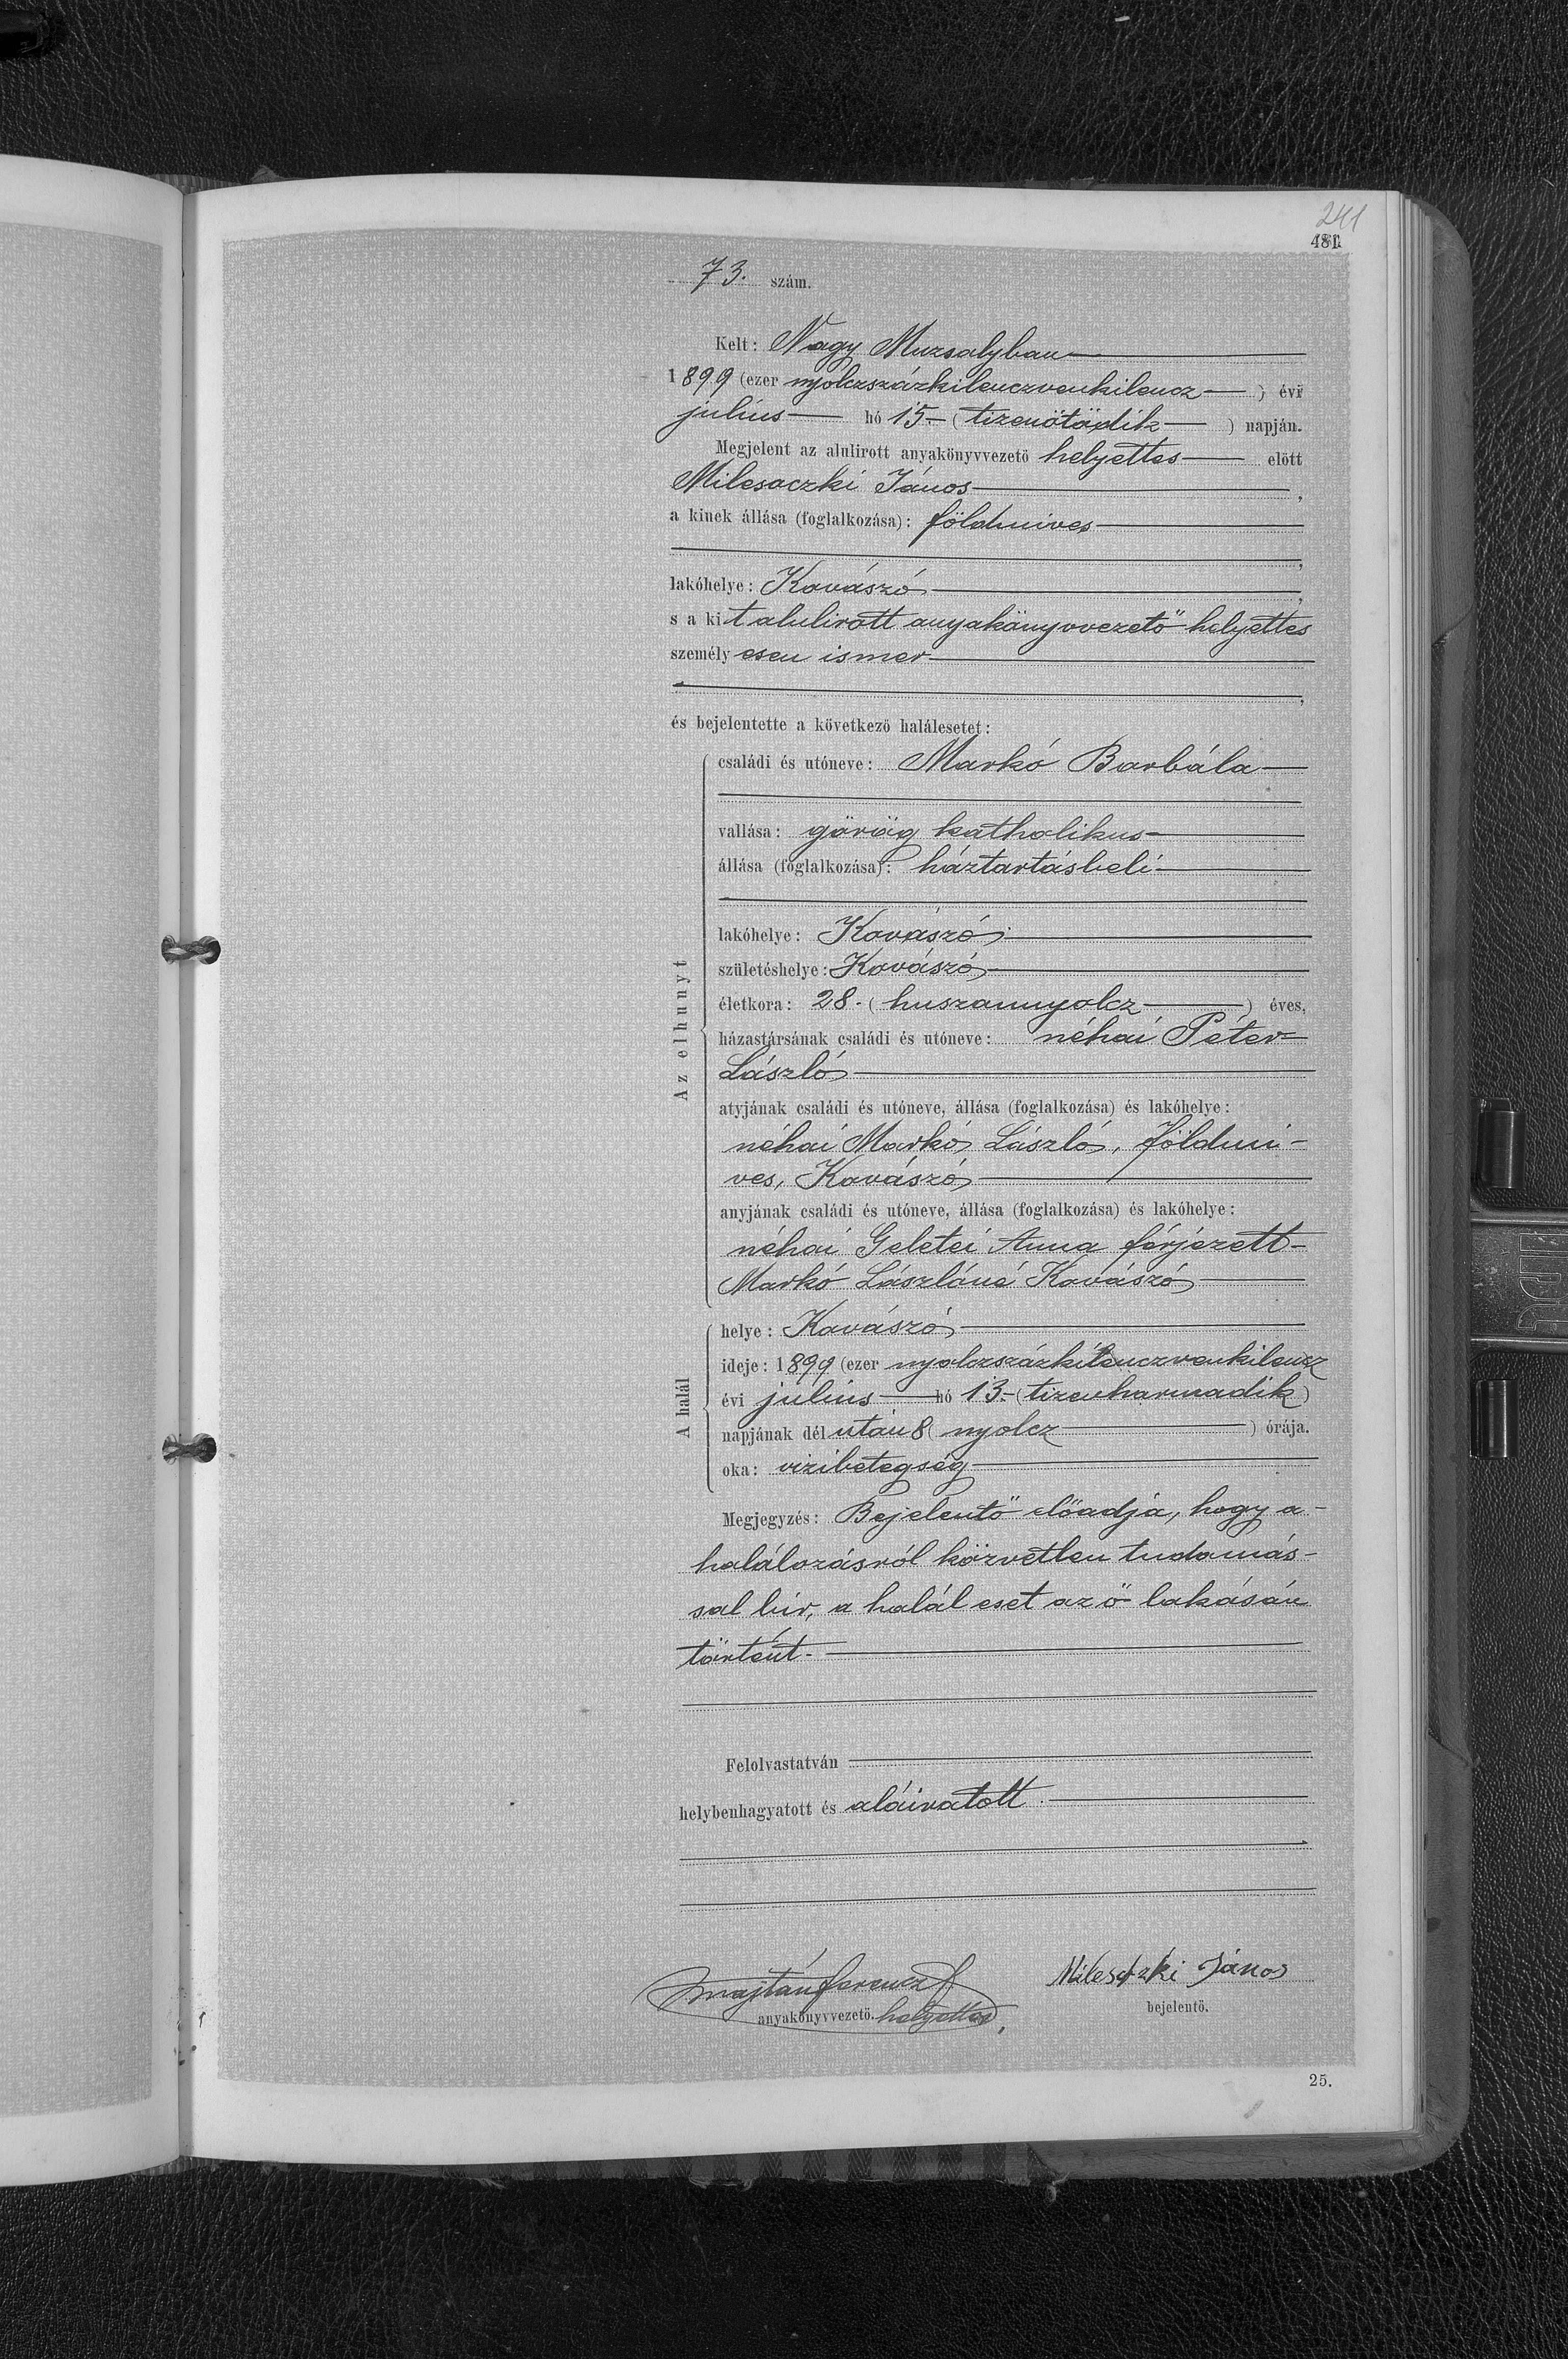 241
481.
73. szám.
Kelt: Nagy Muzsalyban
1899 (ezer nyolczszázkilenczvenkilencz ) évi
julius hó 15. (tizenötödik ) napján.
Megjelent az alulirott anyakönyvvezető helyettes előtt
Milesaczki János,
a kinek állása (foglalkozása): földmives
,
lakóhelye: Kovászó,
s a kit alulirott anyakönyvvezető helyettes
személyesen ismer
,
és bejelentette a következő halálesetet:
Az elhunyt
családi és utóneve: Markó Barbála
vallása: görög katholikus
állása (foglalkozása): háztartásbeli
lakóhelye: Kovászó
születéshelye: Kovászó
életkora: 28. (huszonnyolcz ) éves,
házastársának családi és utóneve: néhai Péter
László
atyjának családi és utóneve, állása (foglalkozása) és lakóhelye:
néhai Markó László, földmi-
ves, Kovászó
anyjának családi és utóneve, állása (foglalkozása) és lakóhelye:
néhai Geletei Anna férjezett
Markó Lászlóné Kovászó
A halál
helye: Kovászó
ideje: 1899 (ezer nyolczszázkilenczvenkilencz
évi julius hó 13. (tizenharmadik)
napjának délután 8 (nyolcz ) órája.
oka: vizibetegség
Megjegyzés: Bejelentő előadja, hogy a
halálozásról közvetlen tudomás-
sal bir, a halál eset az ő lakásán
történt.
Felolvastatván
helybenhagyatott és aláiratott.
Majtán Ferencz
anyakönyvvezető. helyettes,
Milesatzki János
bejelentő.
25.